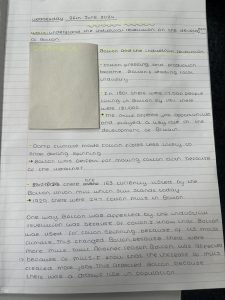 Wednesday 26th June 2024
the industrial revolution on the
of Bolton.
Bolton and the industrial revolution
- Cotton spinning and production
became Bolton's leading local
industry
- In 1801 there was 17,000 people
living in Bolton by 1901 there
were 181,000.
- The
and played a way out in the
development of Bolton
- Damp climate made cotton fibres less likely to
snap during spinning
→ Bolton was perfect for making cotton cloth because
of the weather!
- there were 163 currently listed by the
Bolton which mill which still stands today
• 1929 there were 247 cotton mills in Bolton
One way Bolton was affected by the industrial
revolution was because of cotton's know that Bolton
was used for cotton spinning because of its moist
climate. This changed Bolton because there were
more mills built. Another reason Bolton was affected
is because of mills I know that the increase of mills
created more jobs. This affected Bolton because
there was a drastic rise in population